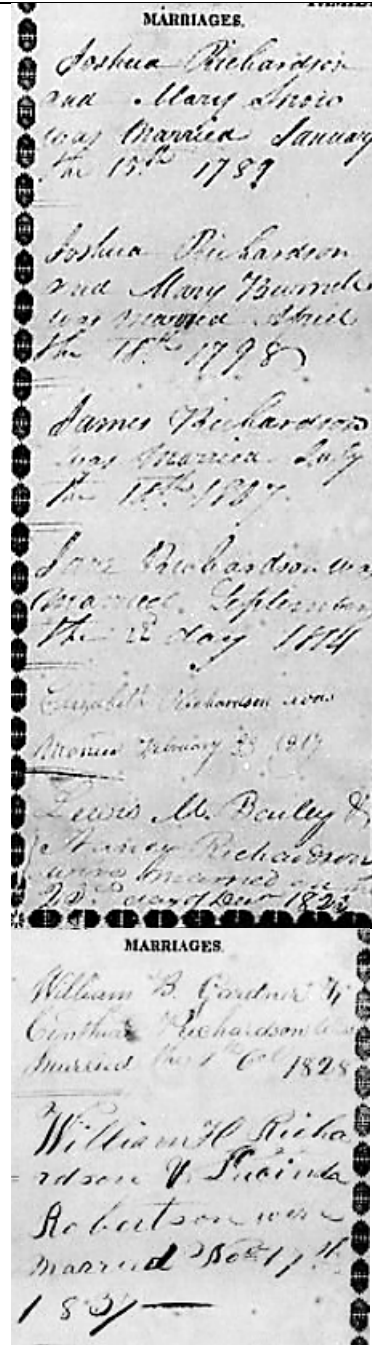 MARRIAGES.
Joshua Richardson
and Mary Snow
was Married January
the 15th 1789
Joshua Richardson
and Mary
was married April
the 18th 1798
James Richardson
was Married July
the 18th 1807
Jane Richardson was
married September
the 22 day 1814
Elizabeth Richardson was
Married February 1817
Lewis M. Bailey &
Nancy Richardson
were married on the
day of Decr 1822
MARRIAGES.
William B. Gardner &
Cinthia Richardson
married the Oct 1828
William H Richa
rdson & Lucinda
Robertson were
married 17th
1837